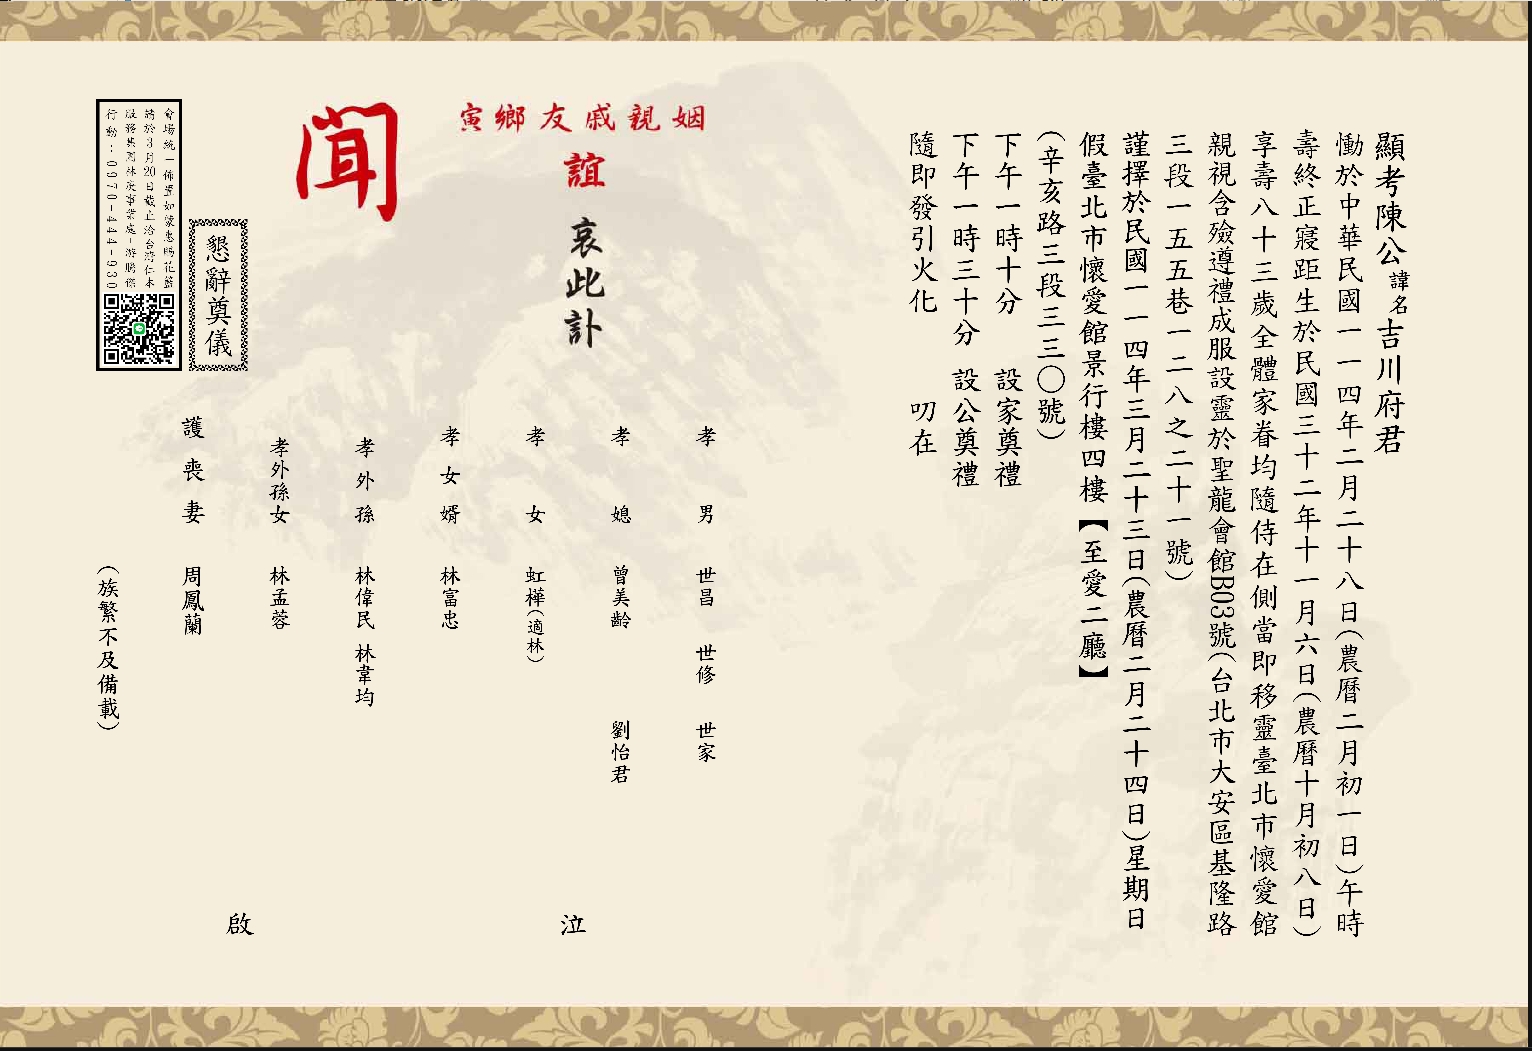 顯考陳公諱名吉川府君
慟於中華民國一一四年二月二十八日(農曆二月初一日)午時
壽終正寢距生於民國三十二年十一月六日(農曆十月初八日)
享壽八十三歲全體家眷均隨侍在側當即移靈臺北市懷愛館
親視含殮遵禮成服設靈於聖龍會館B03號(台北市大安區基隆路
三段一五五巷一二八之二十一號)
謹擇於民國一一四年三月二十三日(農曆二月二十四日)星期日
假臺北市懷愛館景行樓四樓【至愛二廳】
(辛亥路三段三三〇號)
下午一時十分 設家奠禮
下午一時三十分 設公奠禮
隨即發引火化 叨在
姻親戚友鄉寅
誼 哀此訃
聞
孝男 世昌 世修 世家
孝媳 曾美齡 劉怡君
孝女 虹樺(適林)
孝女婿 林富忠
孝外孫 林偉民 林韋均
孝外孫女 林孟蓉
護喪妻 周鳳蘭
(族繁不及備載)
泣
啟
懇辭奠儀
會場統一佈置如蒙惠賜花籃
請於3月20日截止洽台灣仁本
服務集團林 事業處-游騰傑
行動：0970-444-930